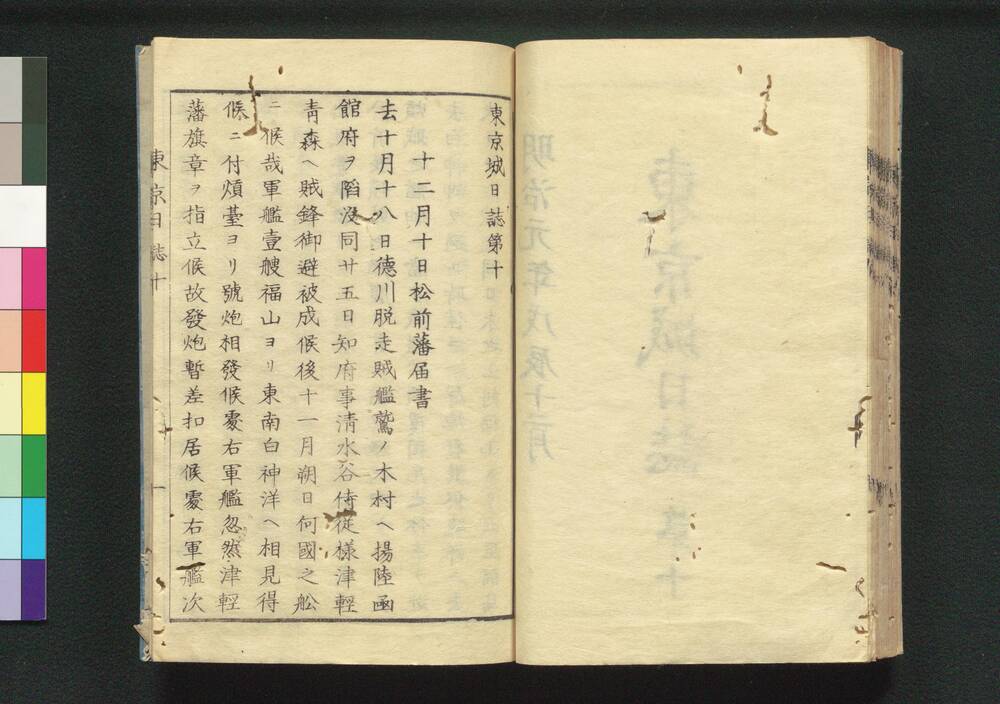 東京城日誌第十
十二月十日松前藩届書
去十月十八日德川脱走賊艦鷲ノ木村ヘ揚陸函
館府ヲ陷沒同廿五日知府事清水谷侍從樣津輕
靑森ヘ賊鋒御避被成候後十一月朔日何國之舩
ニ候哉軍艦壹艘福山ヨリ東南白神洋ヘ相見得
候ニ付煩臺ヨリ號炮相發候處右軍艦忽然津輕
藩旗章ヲ指立候故發炮暫差扣居候處右軍艦次
東京日誌十
一